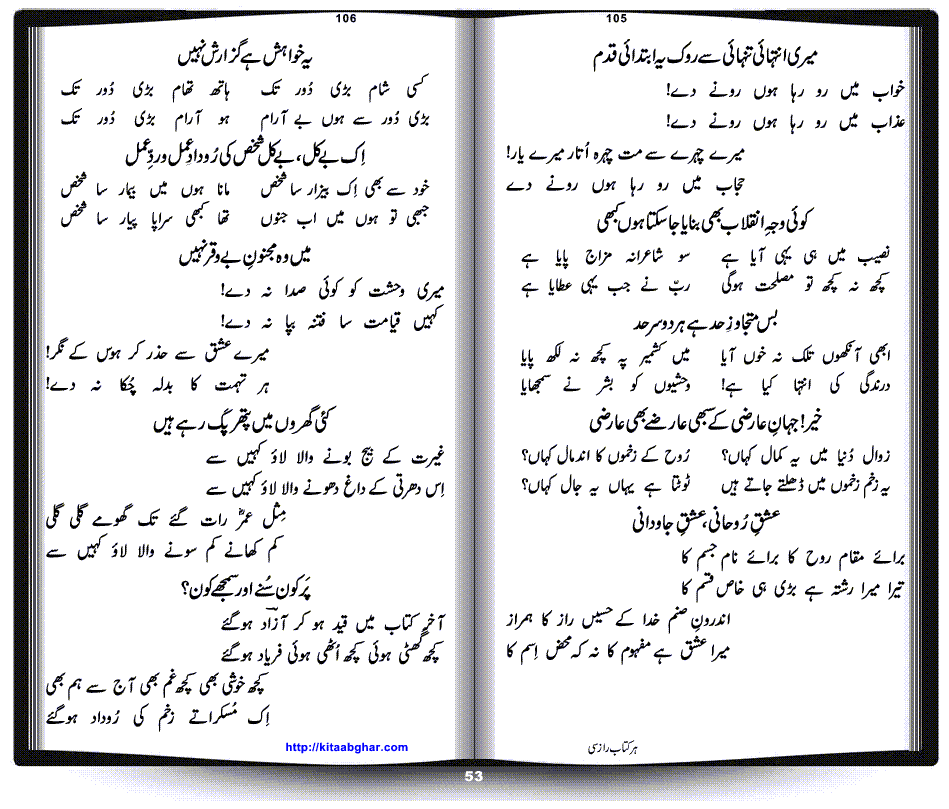 105
میری انتہائی تنہائی سے روک یہ ابتدائی قدم
خواب میں رو رہا ہوں رونے دے!
عذاب میں رو رہا ہوں رونے دے!
میرے چہرے سے مت چہرہ اُتار میرے یار!
حجاب میں رو رہا ہوں رونے دے
کوئی وجہِ انقلاب بھی بنایا جا سکتا ہوں کبھی
نصیب میں ہی یہی آیا ہے سو شاعرانہ مزاج پایا ہے
کچھ نہ کچھ تو مصلحت ہوگی ربّ نے جب یہی عطایا ہے
بس متجاوزِ حد ہے ہر دو سر حد
ابھی آنکھوں تلک نہ خوں آیا میں کشمیر پہ کچھ نہ لکھ پایا
درندگی کی انتہا کیا ہے! وحشیوں کو بشر نے سمجھایا
خیر! جہانِ عارضی کے سبھی عارضے بھی عارضی
زوال دُنیا میں یہ کمال کہاں؟ رُوح کے زخموں کا اندمال کہاں؟
یہ زخم زخموں میں ڈھلتے جاتے ہیں ٹوٹتا ہے یہاں یہ جال کہاں؟
عشقِ رُوحانی، عشقِ جاودانی
برائے مقام روح کا برائے نام جسم کا
تیرا میرا رشتہ ہے بڑی ہی خاص قسم کا
اندرونِ صنم خدا کے حسیں راز کا ہمراز
میرا عشق ہے مفہوم کا نہ کہ محض اِسم کا
ہر کتاب رازسی
106
یہ خواہش ہے گزارش نہیں
کسی شام بڑی دُور تک ہاتھ تھام بڑی دُور تک
بڑی دُور سے ہوں بے آرام ہو آرام بڑی دُور تک
اِک بے کل، بے کل شخص کی رُودادِ عمل وردِّ عمل
خود سے بھی اِک بیزار سا شخص مانا ہوں میں بیمار سا شخص
جبھی تو ہوں میں اب جنوں تھا کبھی سراپا پیار سا شخص
میں وہ مجنونِ بے وقر نہیں
میری وحشت کو کوئی صدا نہ دے!
کہیں قیامت سا فتنہ بپا نہ دے!
میرے عشق سے حذر کر ہوس کے نگر!
ہر تہمت کا بدلہ چُکا نہ دے!
کئی گھروں میں پتھر پک رہے ہیں
غیرت کے بیج بونے والا لاؤ کہیں سے
اِس دھرتی کے داغ دھونے والا لاؤ کہیں سے
مِثلِ عمرؓ رات گئے تک گھومے گلی گلی
کم کھانے کم سونے والا لاؤ کہیں سے
پَر کون سُنے اور سمجھے کون؟
آخر کتاب میں قید ہو کر آزاد ہوگئے
کچھ گھٹی ہوئی کچھ اُٹھی ہوئی فریاد ہوگئے
کچھ خوشی بھی کچھ غم بھی آج سے ہم بھی
اِک مُسکراتے زخم کی رُوداد ہوگئے
http://kitaabghar.com
53